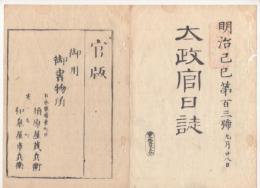 明治己巳第百三號 九月廿八日
太政官日誌
官版
御用
御書物所
須原屋茂兵衛
和泉屋市兵衛